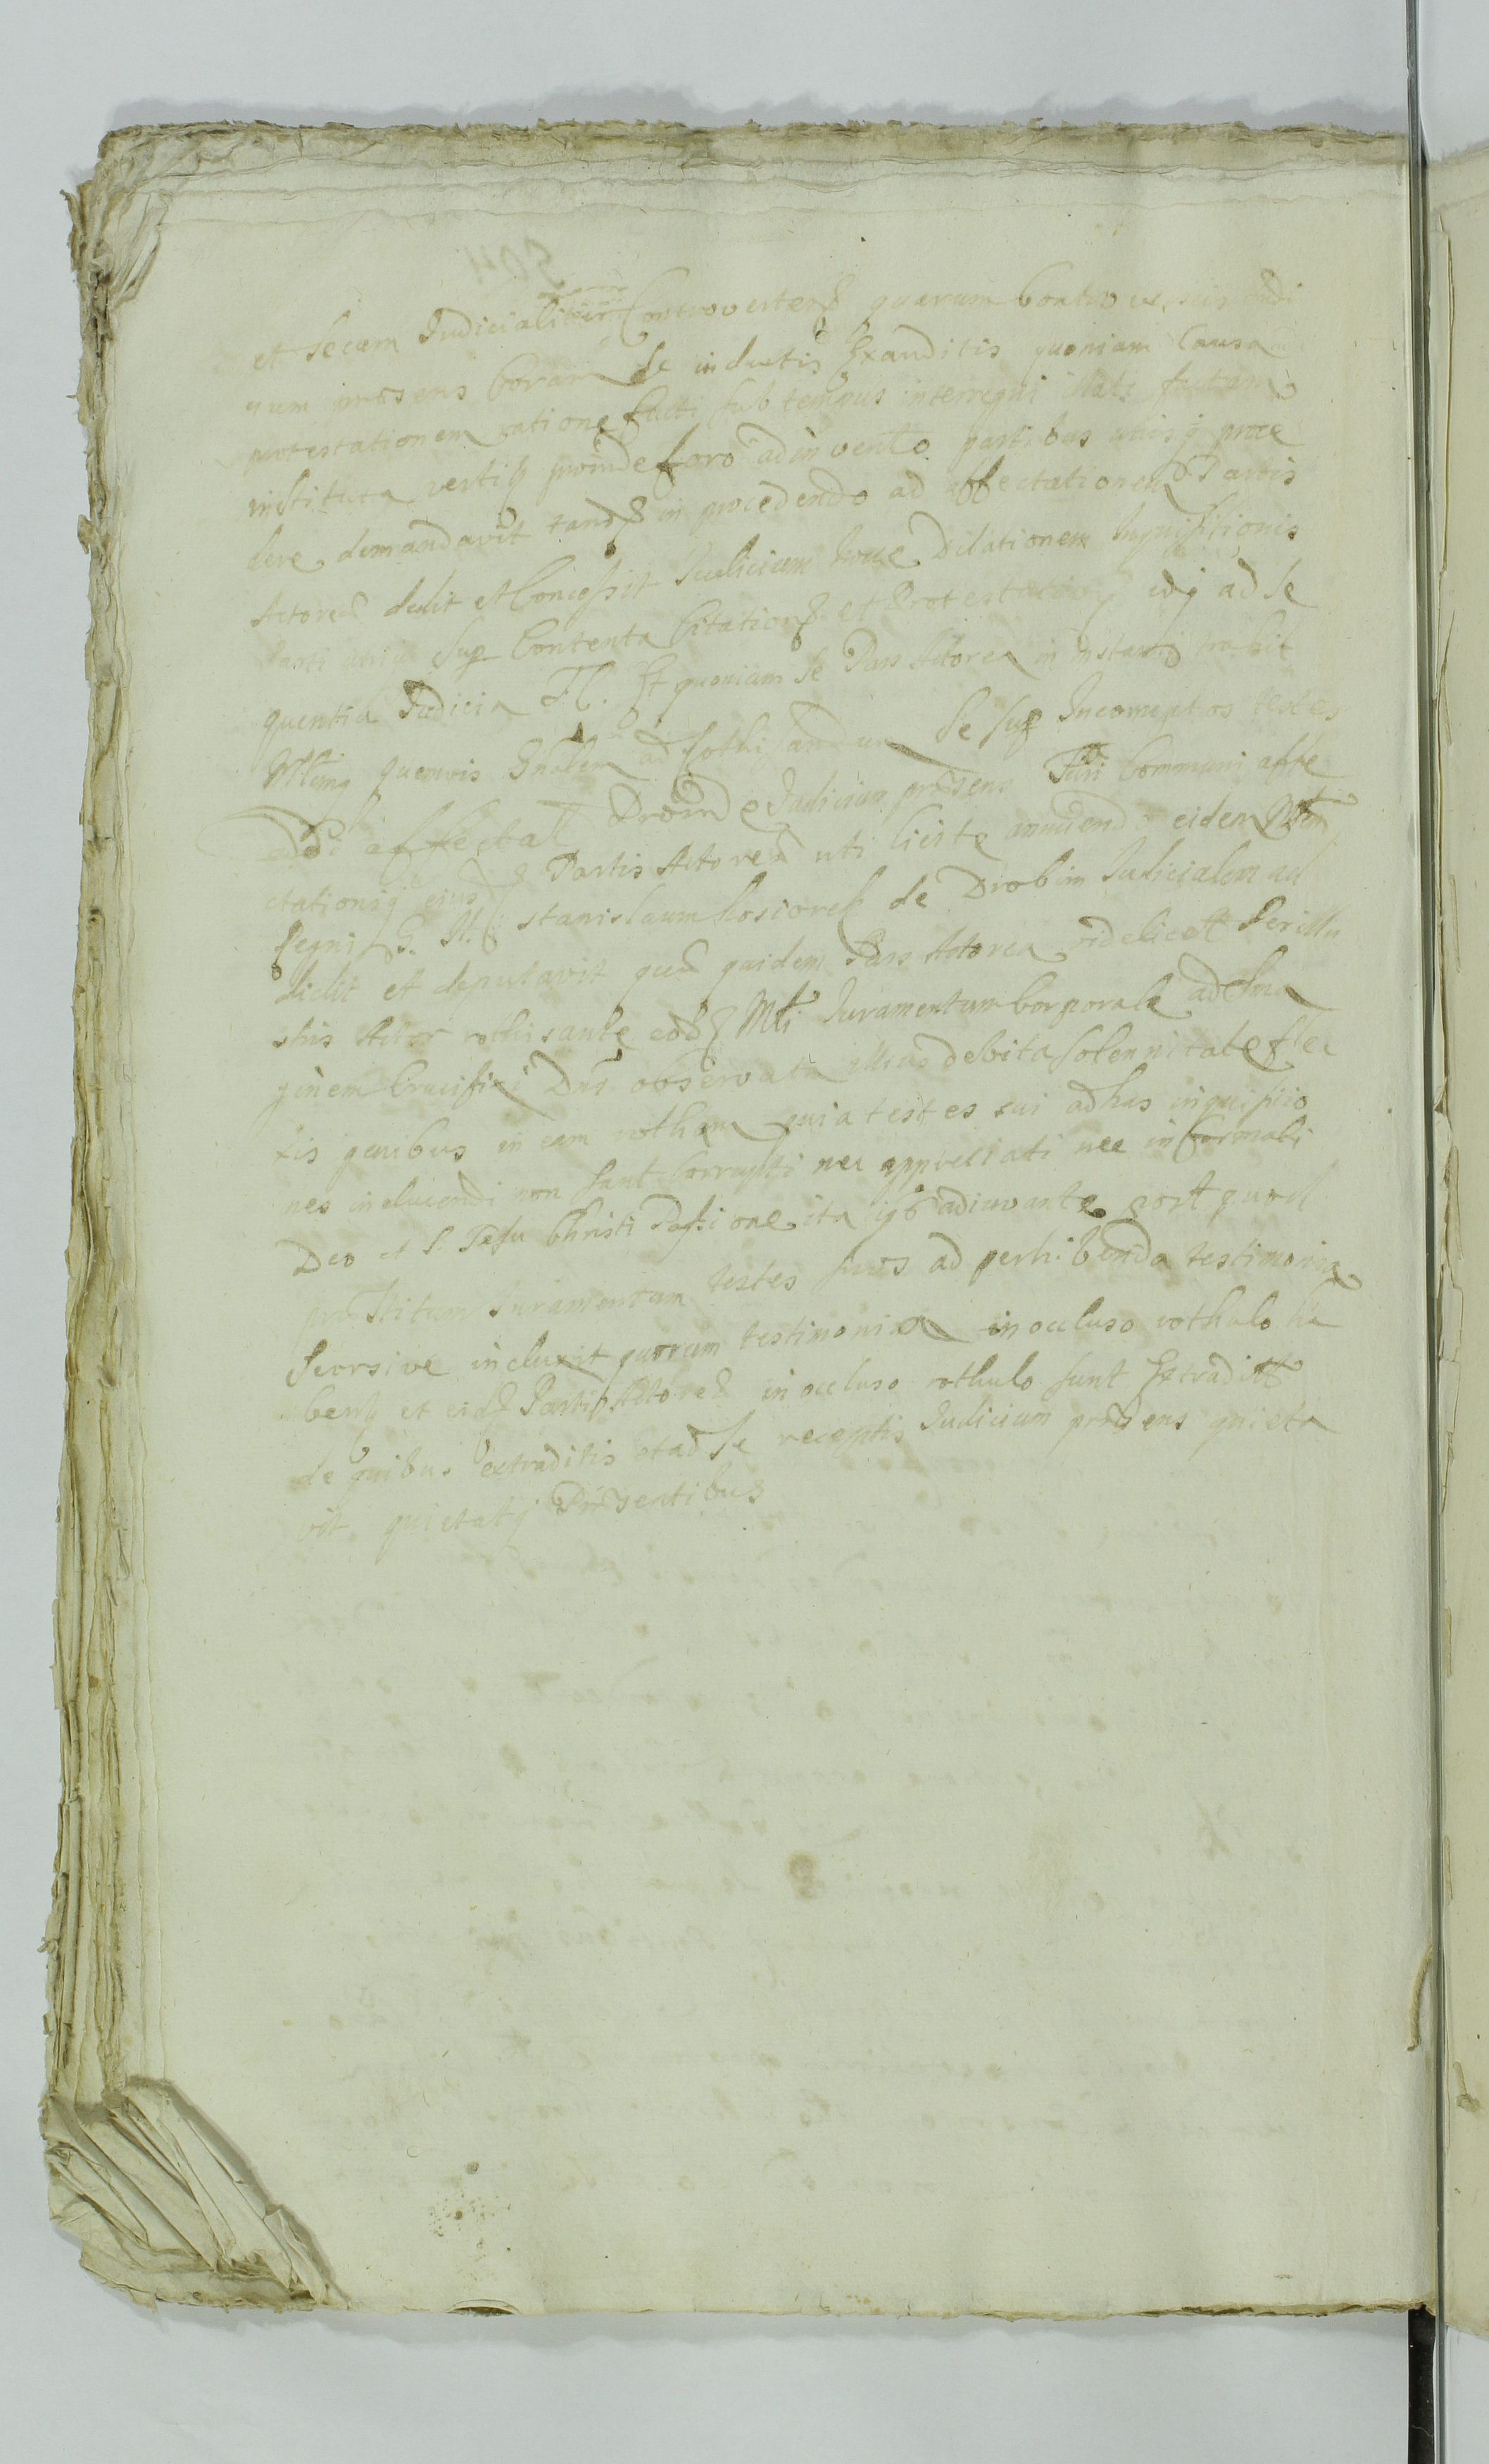 et secum Judicialiter Controverten quarum Controver. Judi
cium praesens Coram se inductis Exauditis quoniam Causa
protestationem ratione facti sub tempus interregni factam
instituta vertit proinde foro adinvento partibus utrisq proce
dere demandavit tand in procedendo ad affectationem Partis
Actorea dedit et Concessit Judicium hocce Dilationem Inquisitionis
Parti utriq Sup Contenta Citation et Protestation idq ad se
quentia Judicia Tl. Et quoniam se Pars Actorea in instanti
Mlemq quemvis Gnalem ad rothisandum se sup Incorruptos testes
addi affectat Proinde Judicium praesens Juri Communi affe
ctationiq eius Partis Actorea uti licite annuendo eidem Mlem
Regni G. N. Stanislaum Kosiorek de Drobin Judicialem ad
didit et deputavit quod quidem Pars Actorea videlicet Perillu
stris Actor rothisante eod Mli Juramentum Corporale ad Ima
ginem Crucifixi Dni observata illius debita solennitate fle
xis genibus in eam rotham quia testes sui ad has inquisitio
nes inducendi non sunt Corrupti nec appreciati nec informati
Deo et S. Jesu Christi Passione ita ipso adiuvante post quod
praestitum Juramentum testes suos ad perhibenda testimonia
Seorsive induxit quorum testimonia in occluso rothulo ha
bent et eid Parti Actorea in occluso rothulo sunt Extradita
de quibus extraditis et ad se receptis Judicium praesens quieta
vit quietatq Praesentibus